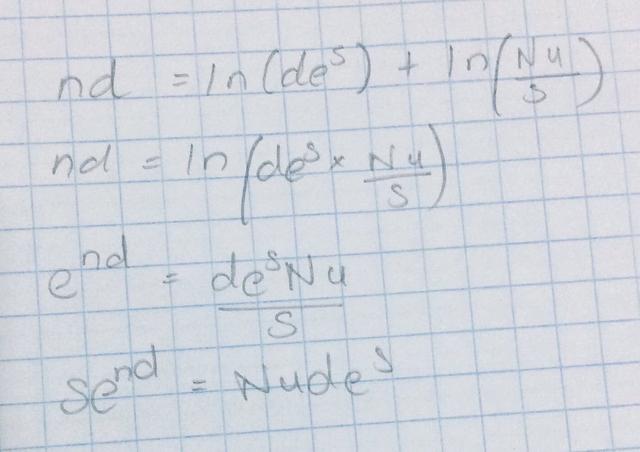 nd = ln(de^s) + ln(Nu/s)
nd = ln(de^s × Nu/s)
e^nd = de^s Nu/s
se^nd = Nude^s